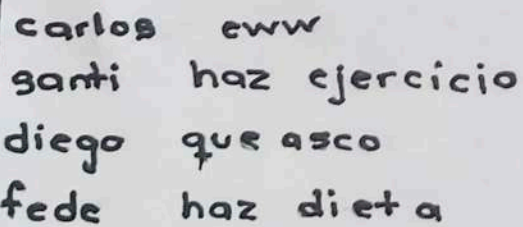 carlos eww
santi haz ejercicio
diego que asco
fede haz dieta